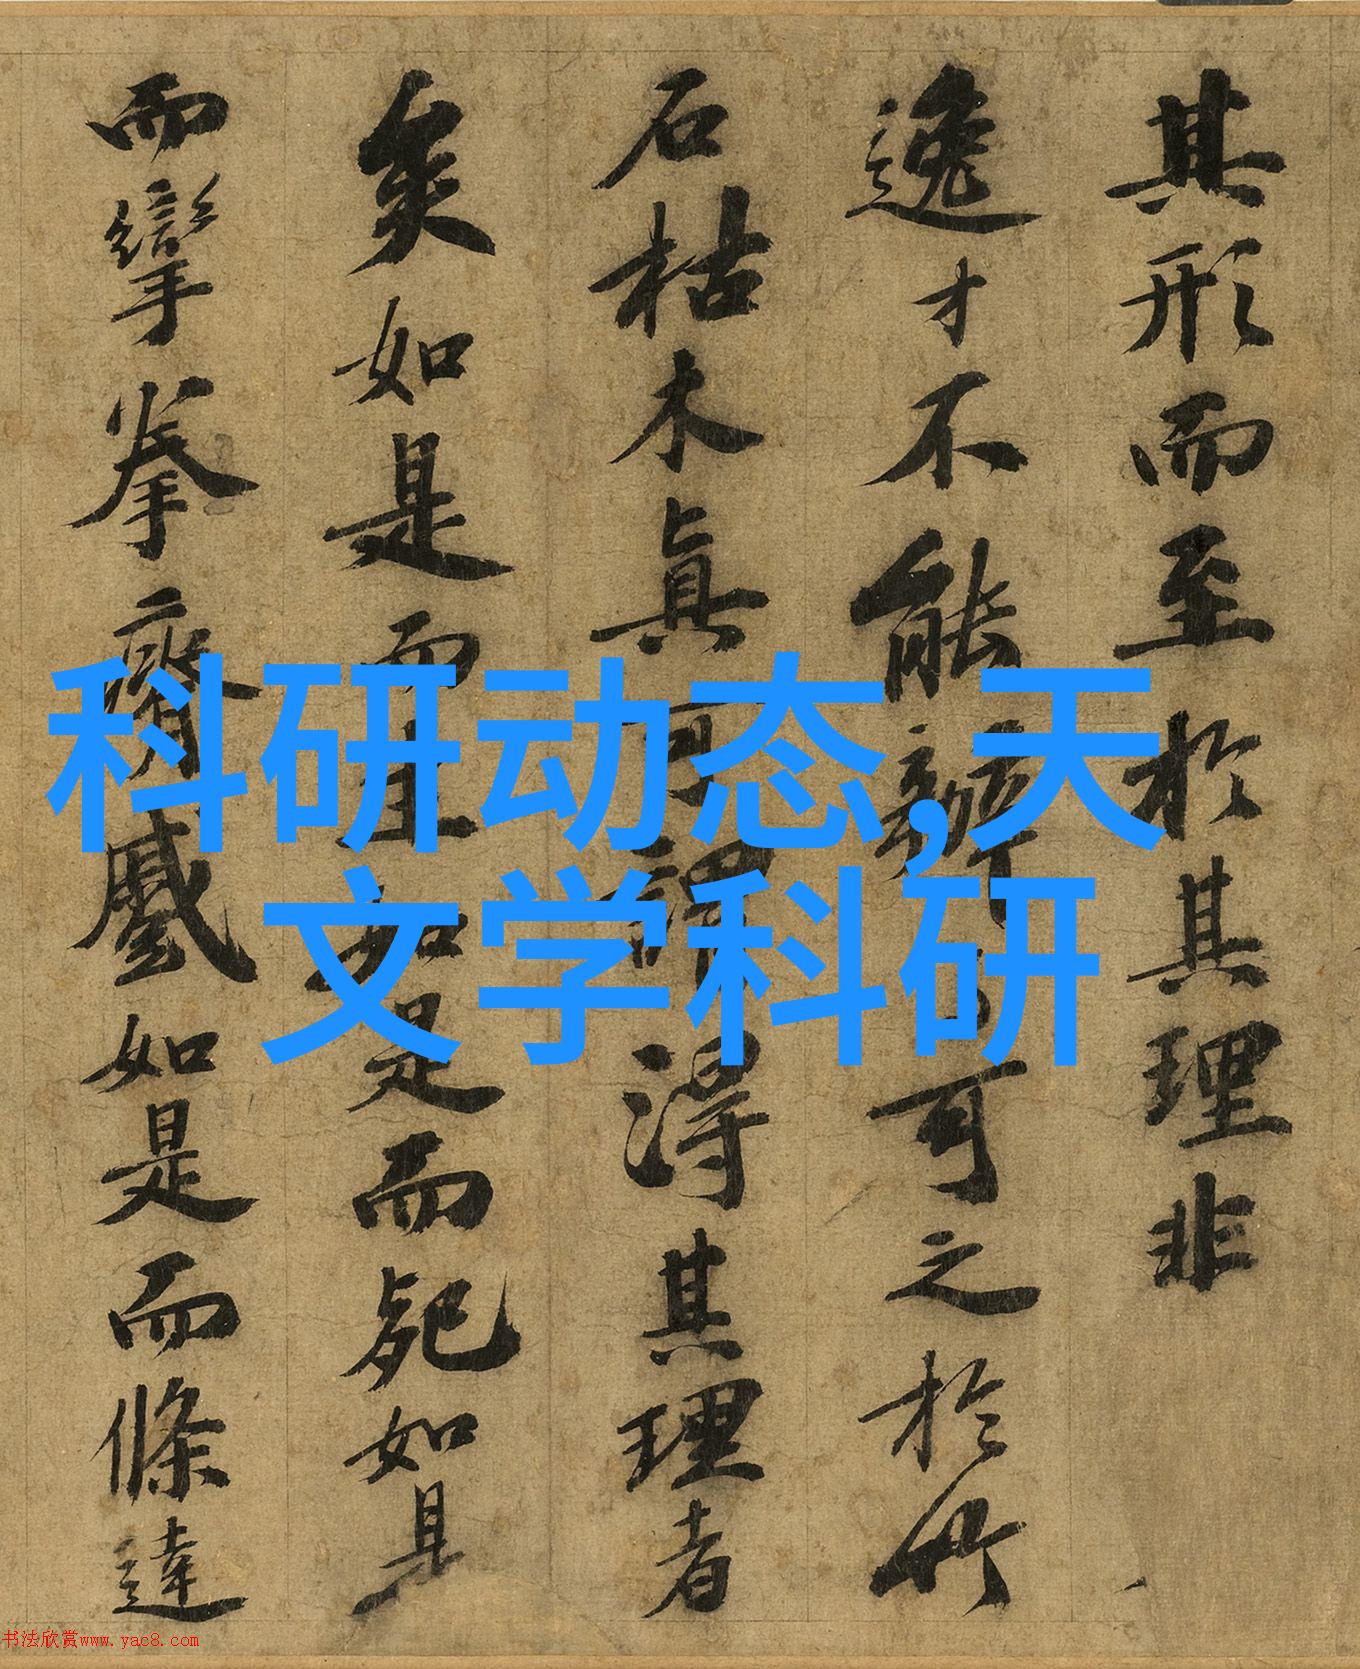 其形而至於其理非
逸才不能辦 可之於竹
石枯木真可謂得其理者
矣如是而生如是而死如是
而攣拳瘠蹙如是而條達
科研动态,天
文学科研
书法欣赏www.yac8.com